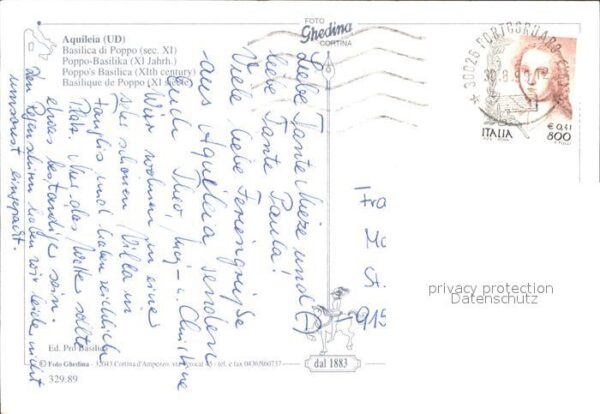 Aquileia (UD)
Basilica di Poppo (sec. XI)
Poppo-Basilika (XI Jahrh.)
Poppo's Basilica (XIth century)
Basilique de Poppo (XI siècle)
FOTO
Ghedina
CORTINA
30026 PORTOGRUARO
ITALIA
€ 0,41
800
Liebe Tante Mize und
liebe Tante Paula!
Viele liebe Feriengrüße
aus Aquileia senden
Euch Theo, - u. Christine
Wir wohnen in einer
sehr schönen Villa in
und haben reichlich
Platz. Nur das Wetter sollte
etwas beständig sein.
Den Regenschirm haben wir leider nicht
umsonst eingepackt.
Fra
-915
privacy protection
Datenschutz
Ed. Pro Basilica
© Foto Ghedina - 32043 Cortina d'Ampezzo, via - tel. e fax 0436/860737
dal 1883
329.89